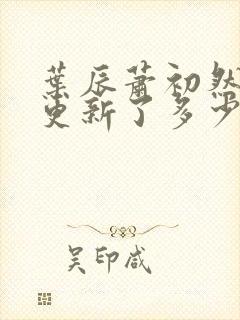 葉辰蕭初然
更新了多少
吴印咸